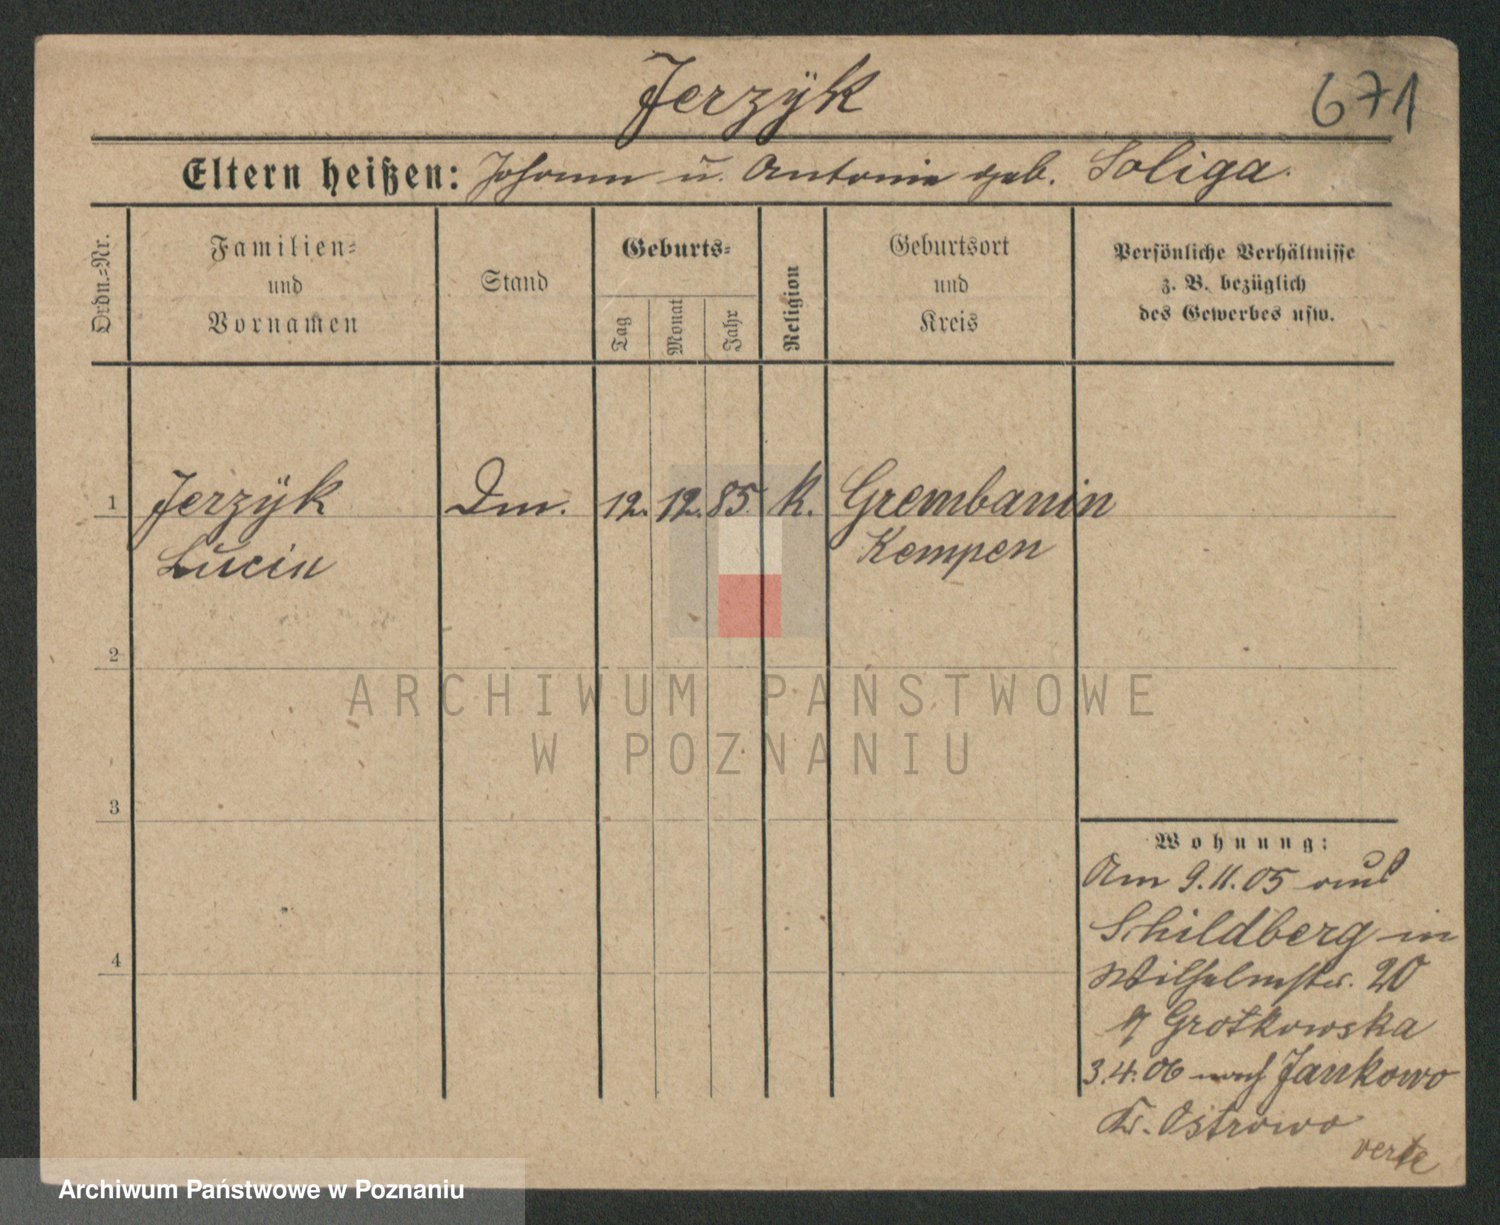 Jerzÿk
671
Eltern heißen: Johann u. Antonie geb. Soliga.
Ordn.-Nr.
Familien-
und
Vornamen
Stand
Geburts-
Tag
Monat
Jahr
Religion
Geburtsort
und
Kreis
Persönliche Verhältnisse
z. B. bezüglich
des Gewerbes usw.
1 Jerzÿk Dm. 12. 12. 85 K. Grembanin
Lucin Kempen
2
ARCHIWUM PAŃSTWOWE
W POZNANIU
3
Wohnung:
Am 9.11.05 aus
Schildberg in
Wilhelmstr. 20
Grotkowska
3.4.06 nach Jankowo
Kr. Ostrowo
verte
4
Archiwum Państwowe w Poznaniu